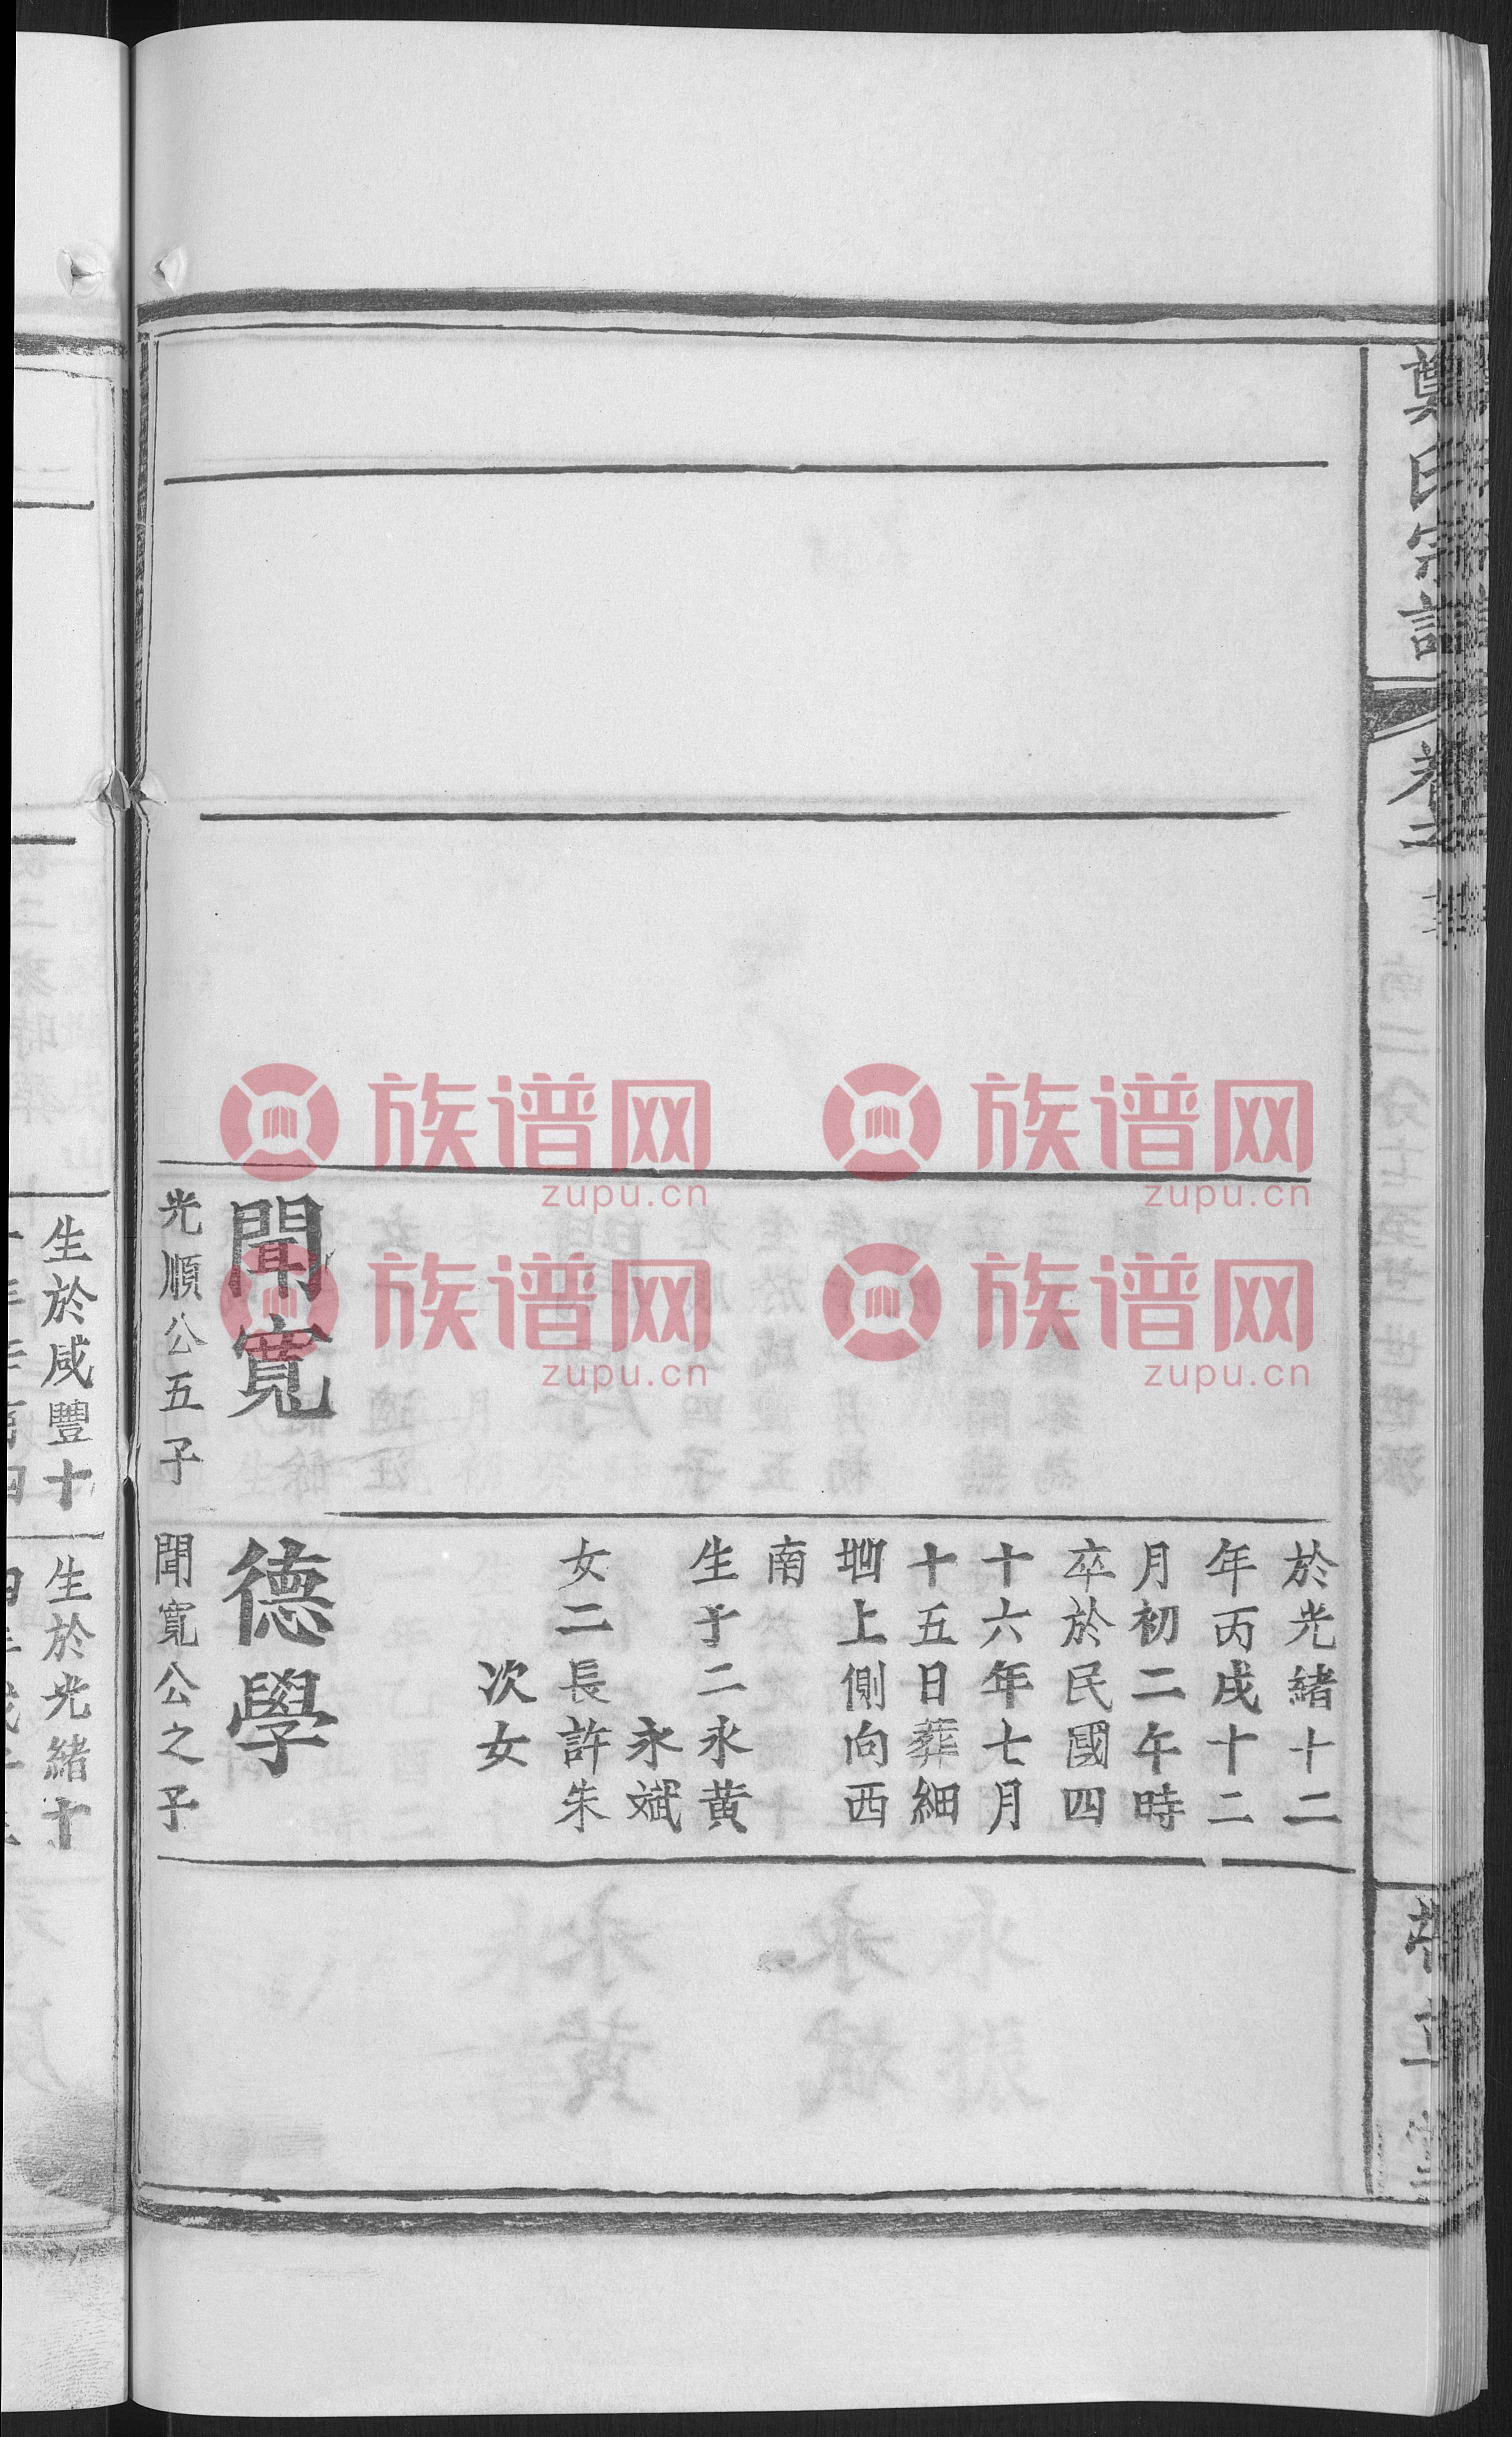 於光緒十二
年丙戌十二
月初二午時
卒於民國四
十六年七月
十五日葬細
坳上側向西
南
生子二永黄
永斌
女二長許朱
次女
聞寬
光順公五子
德學
聞寬公之子
生於咸豐十
生於光緒十
族谱网
zupu.cn
族谱网
zupu.cn
族谱网
zupu.cn
族谱网
zupu.cn